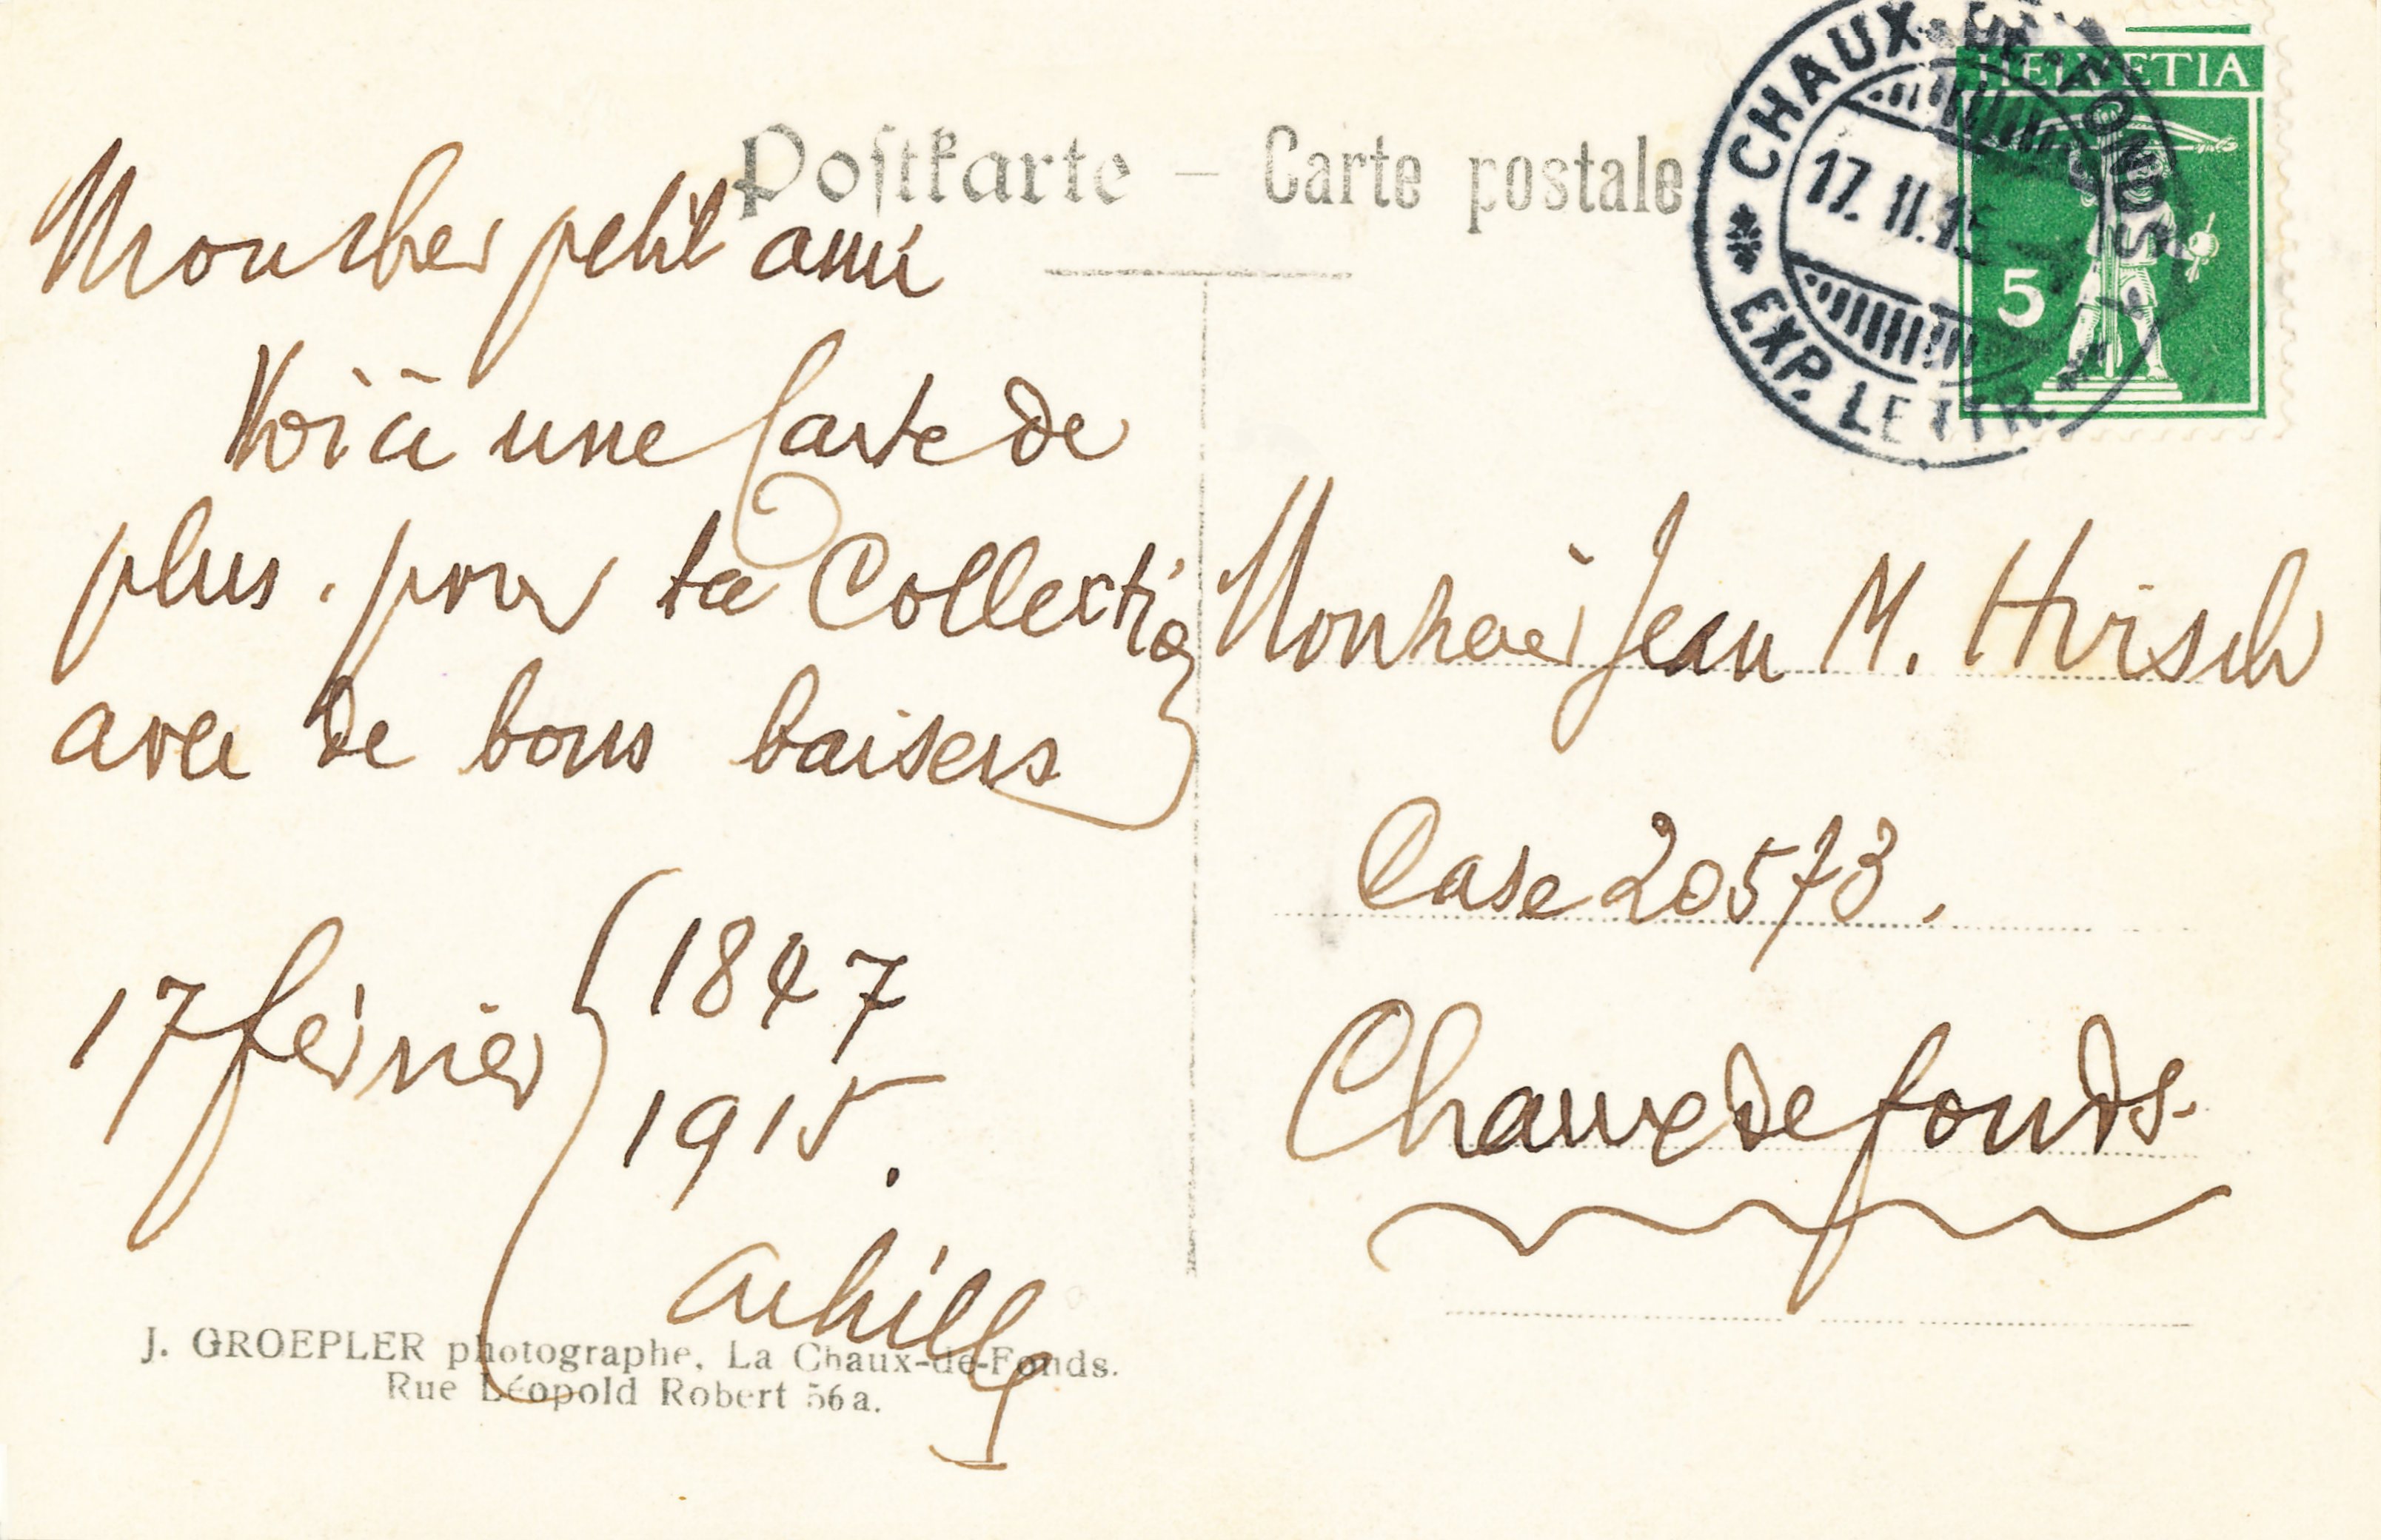 Postkarte — Carte postale
CHAUX-DE-FONDS
17. II. 15
EXP. LETTR.
HELVETIA
5
Mon cher petit ami
Voici une Carte de
plus. pour ta Collection
avec de bons baisers
17 février { 1847
1915.
Achille
J. GROEPLER photographe, La Chaux-de-Fonds.
Rue Léopold Robert 56a.
Monsieur Jean M. Hirsch
Case 20573.
Chaux de fonds.